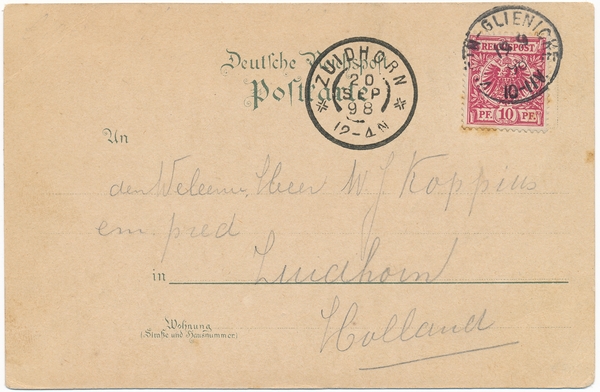 Deutsche Reichspost
Postkarte
ZUIDHORN
20
SEP
98
12-4N
GLIENICKE
REICHSPOST
10
PF. 10 PF.
An
den Weleerw. Heer W J Koppius
em. pred
in Zuidhorn
Holland
Wohnung
(Straße und Hausnummer)